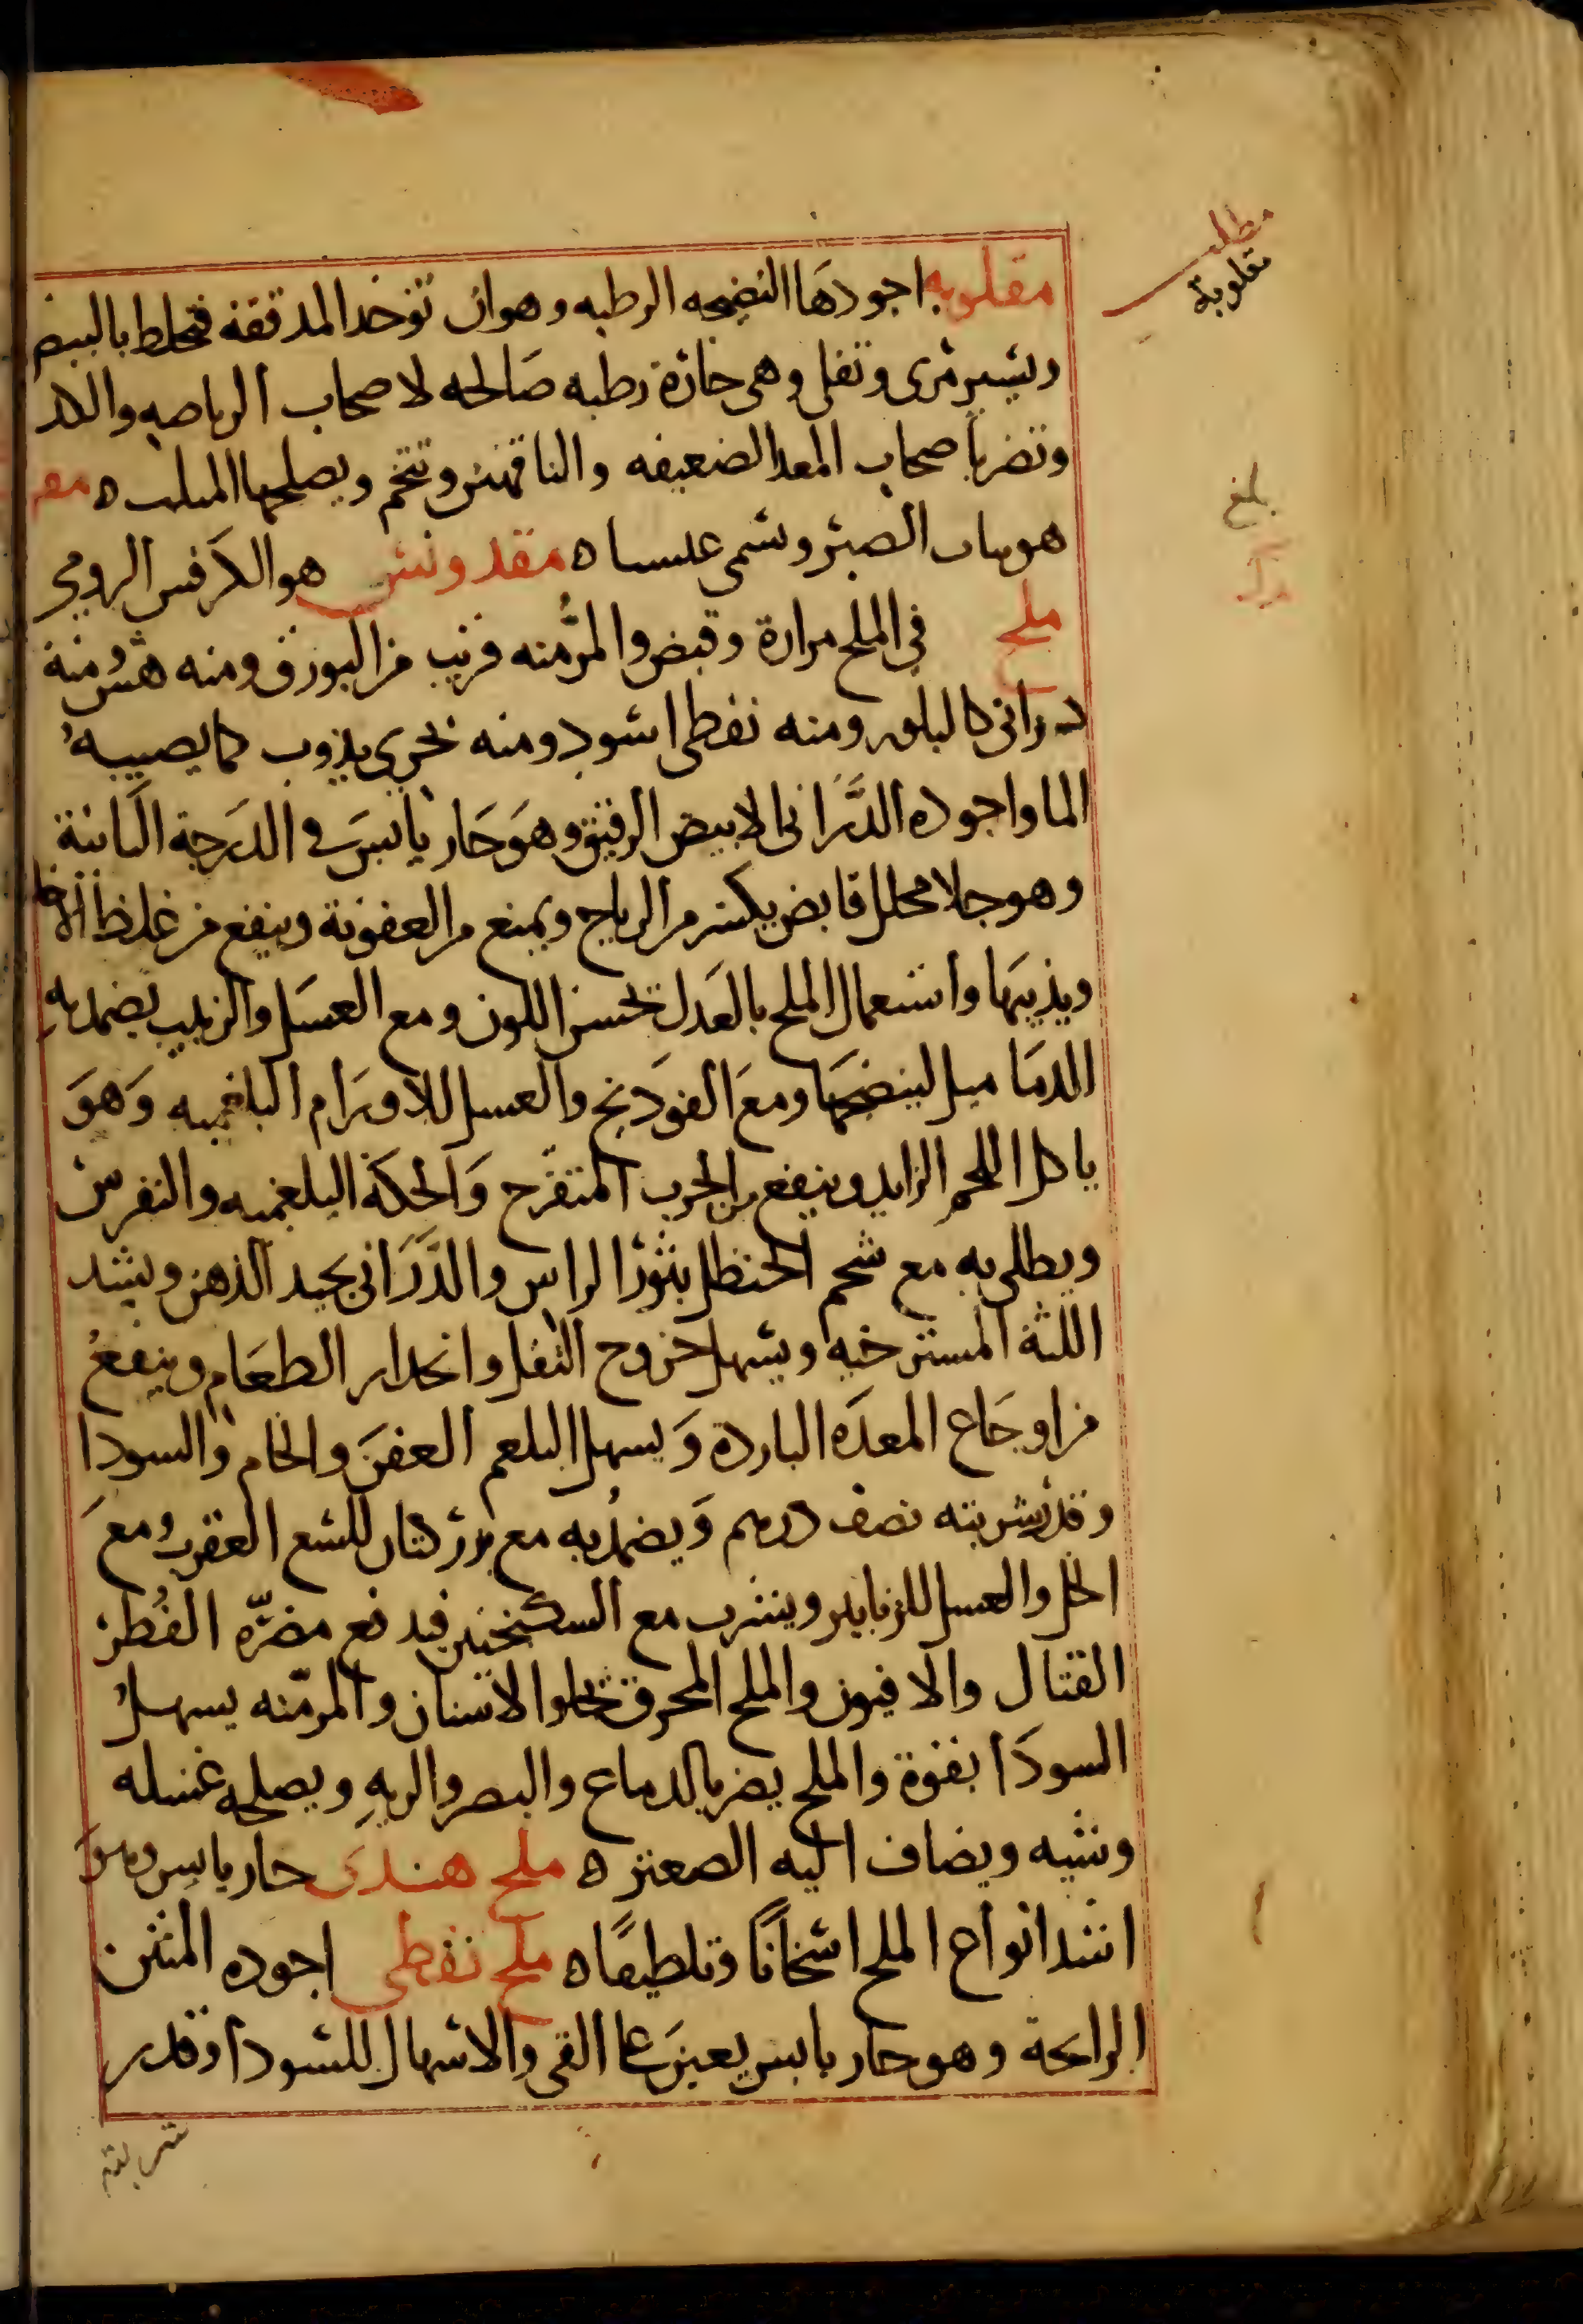 مطلب
مقلوبة
مقلوبه اجودها النضيجه الرطبه وهو ان توخذ المدققة فتخلط بالبيض
ويسير مرى وتقلى وهى حارة رطبه صالحه لاصحاب الرياضه والكد
وتضر باصحاب المعد الضعيفه والناقهين وتتخم ويصلحها
بلغ
هو نبات الصبر وتسمى مقدونس هو الكرفس الرومي
ملح في الملح مرارة وقبض والمر منه قريب من البورق ومنه هش منه
درانى كالبلور ومنه نفطى اسود ومنه بحرى يذوب كما يصيبه
الما واجوده الدرانى الابيض الرقيق وهو حار يابس في الدرجة الثانية
وهو جلا محلل قابض يكسر من الرياح ويمنع من العفونة وينفع من غلظ الاخلا
ويذيبها واستعمال الملح بالعدل يحسن اللون ومع العسل والزبيب يضمد به
الدماميل لينضجها ومع الفودنج والعسل للاورام البلغميه وهو
ياكل اللحم الزايد وينفع من الجرب المتقرح والحكة البلغميه والنقرس
ويطلى به مع شحم الحنظل بثور الراس والدرانى يحيد الذهن ويشد
اللثة المسترخيه ويسهل خروج الثفل وانحدار الطعام وينفع
من اوجاع المعده الباردة ويسهل البلغم العفن والخام والسودا
وقدر شربته نصف درهم ويضمد به مع بزر كتان للسع العقرب ومع
الخل والعسل للزنابير ويشرب مع السكنجبين فيدفع مضره الفطر
القتال والافيون والملح المحرق يجلوا الاسنان والمر منه يسهل
السودا بقوة والملح يضر بالدماغ والبصر والريه ويصلحه غسله
وشيه ويضاف اليه الصعتر ه ملح هندى حار يابس وهو
اشد انواع الملح اسخانا وتلطيفا ه ملح نفطى اجوده المنتن
الرايحة وهو حار يابس يعين على القى والاسهال للسودا وقدر
شربته